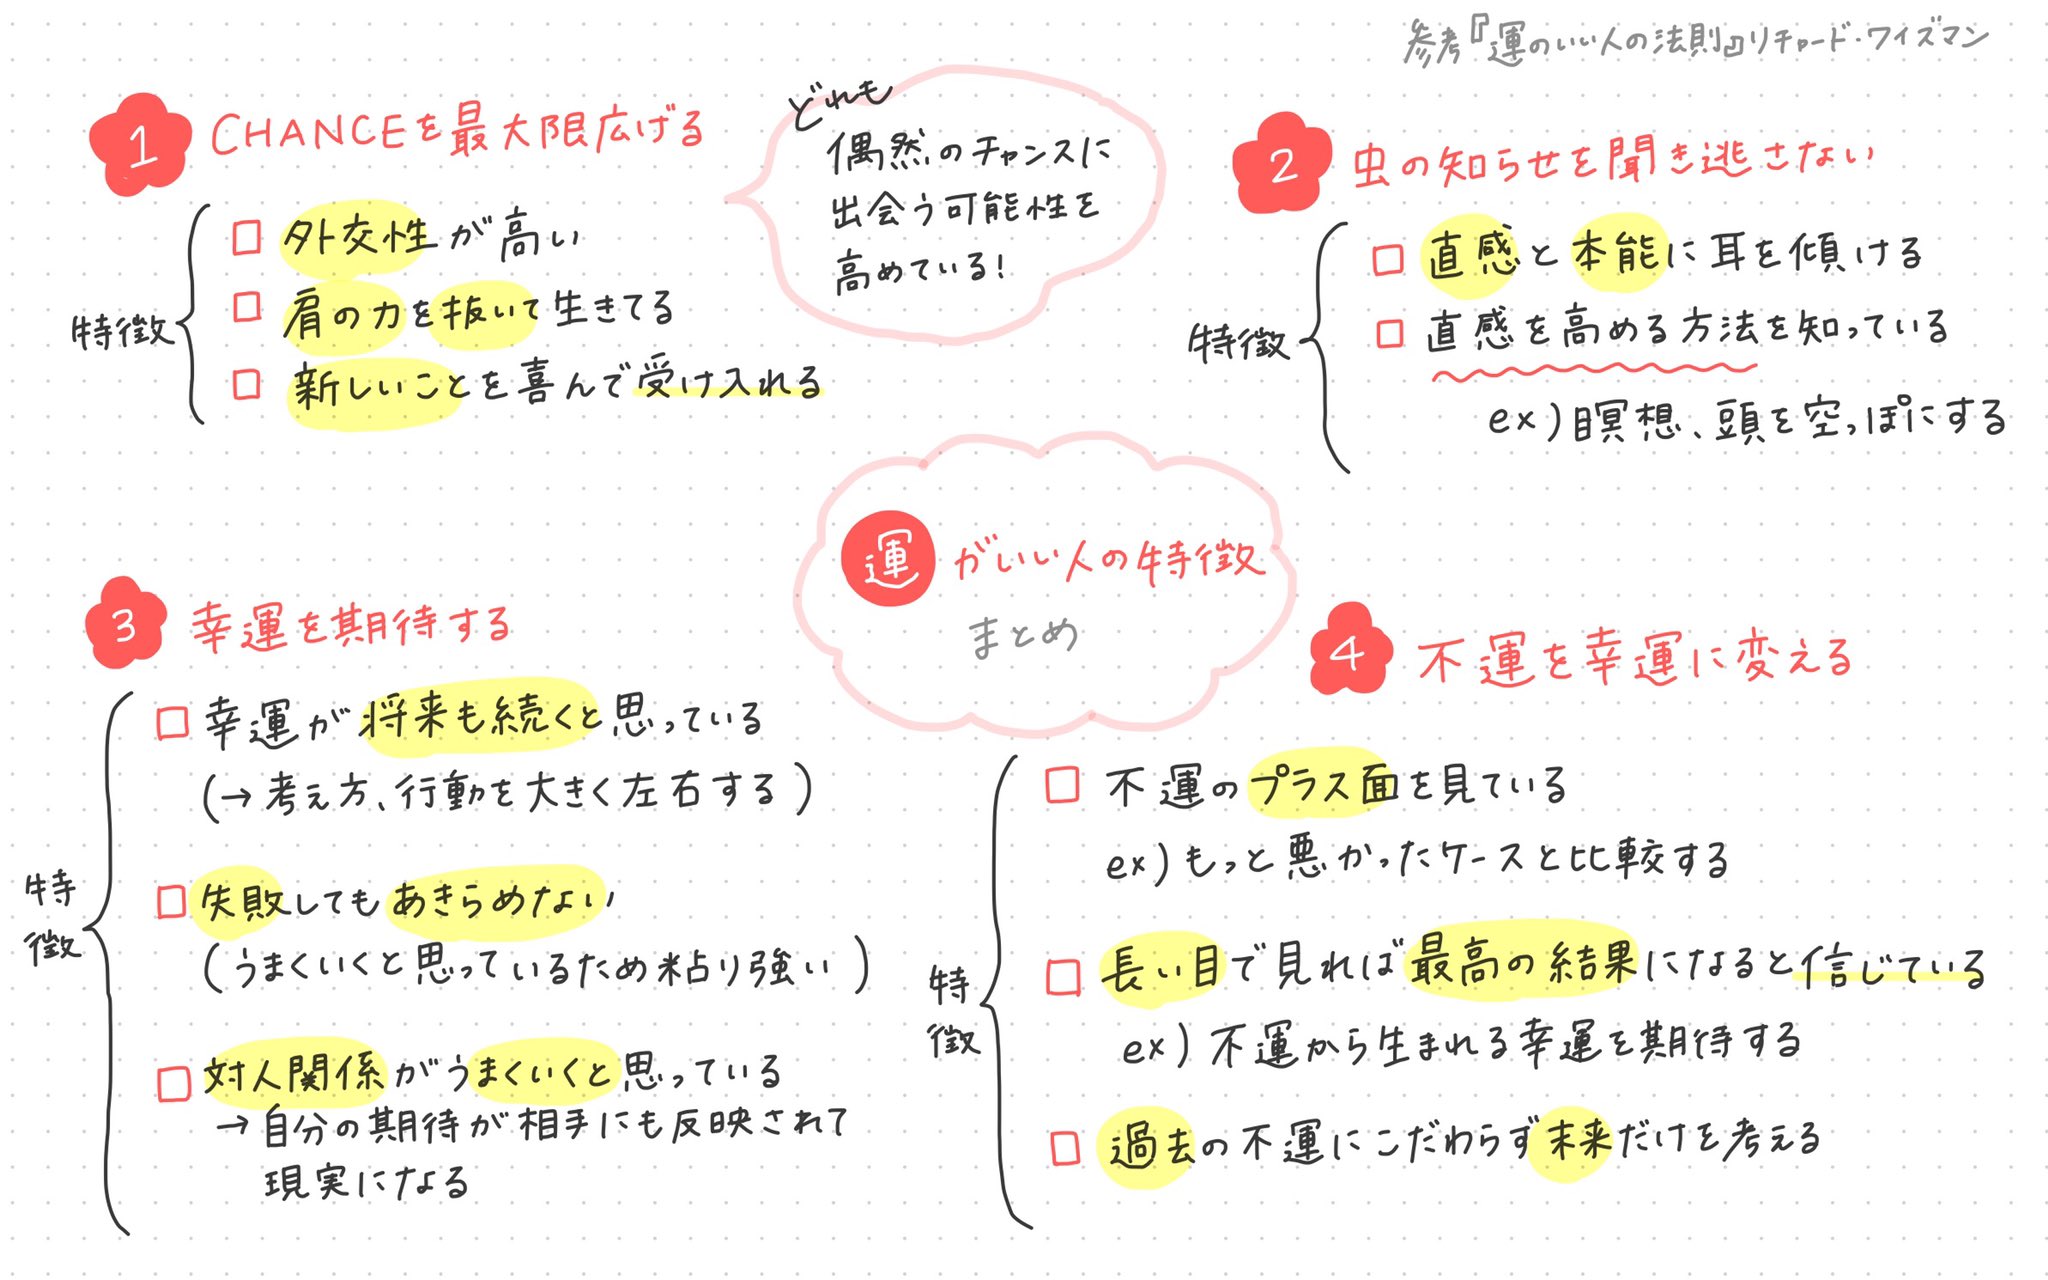 参考『運のいい人の法則』リチャード・ワイズマン
1 CHANCEを最大限広げる
特徴
□ 外交性が高い
□ 肩の力を抜いて生きてる
□ 新しいことを喜んで受け入れる
どれも
偶然のチャンスに
出会う可能性を
高めている!
2 虫の知らせを聞き逃さない
特徴
□ 直感と本能に耳を傾ける
□ 直感を高める方法を知っている
ex)瞑想、頭を空っぽにする
運がいい人の特徴
まとめ
3 幸運を期待する
特
徴
□ 幸運が将来も続くと思っている
(→考え方、行動を大きく左右する)
□ 失敗してもあきらめない
(うまくいくと思っているため粘り強い)
□ 対人関係がうまくいくと思っている
→自分の期待が相手にも反映されて
現実になる
4 不運を幸運に変える
特
徴
□ 不運のプラス面を見ている
ex)もっと悪かったケースと比較する
□ 長い目で見れば最高の結果になると信じている
ex)不運から生まれる幸運を期待する
□ 過去の不運にこだわらず未来だけを考える